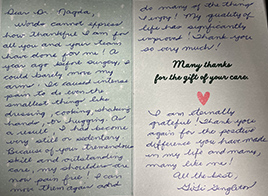 Dear Dr. Nagda,
Words cannot express
how thankful I am for
all you and your team
have done for me! A
year ago before surgery, I
could barely move my
arms! It caused intense
pain to do even the
smallest things like
dressing, cooking, shaking
hands, or hugging. As
a result, I had become
very still or sedentary.
Because of your tremendous
skill and outstanding
care, my shoulders are
now pain free! I can
move them again and
do many of the things
I enjoy! My quality of
life has significantly
improved! Thank you
so very much!
Many thanks
for the gift of your care.
I am eternally
grateful! Thank you
again for the positive
difference you have made
in my life and many,
many like me!
All the best,
Singleton